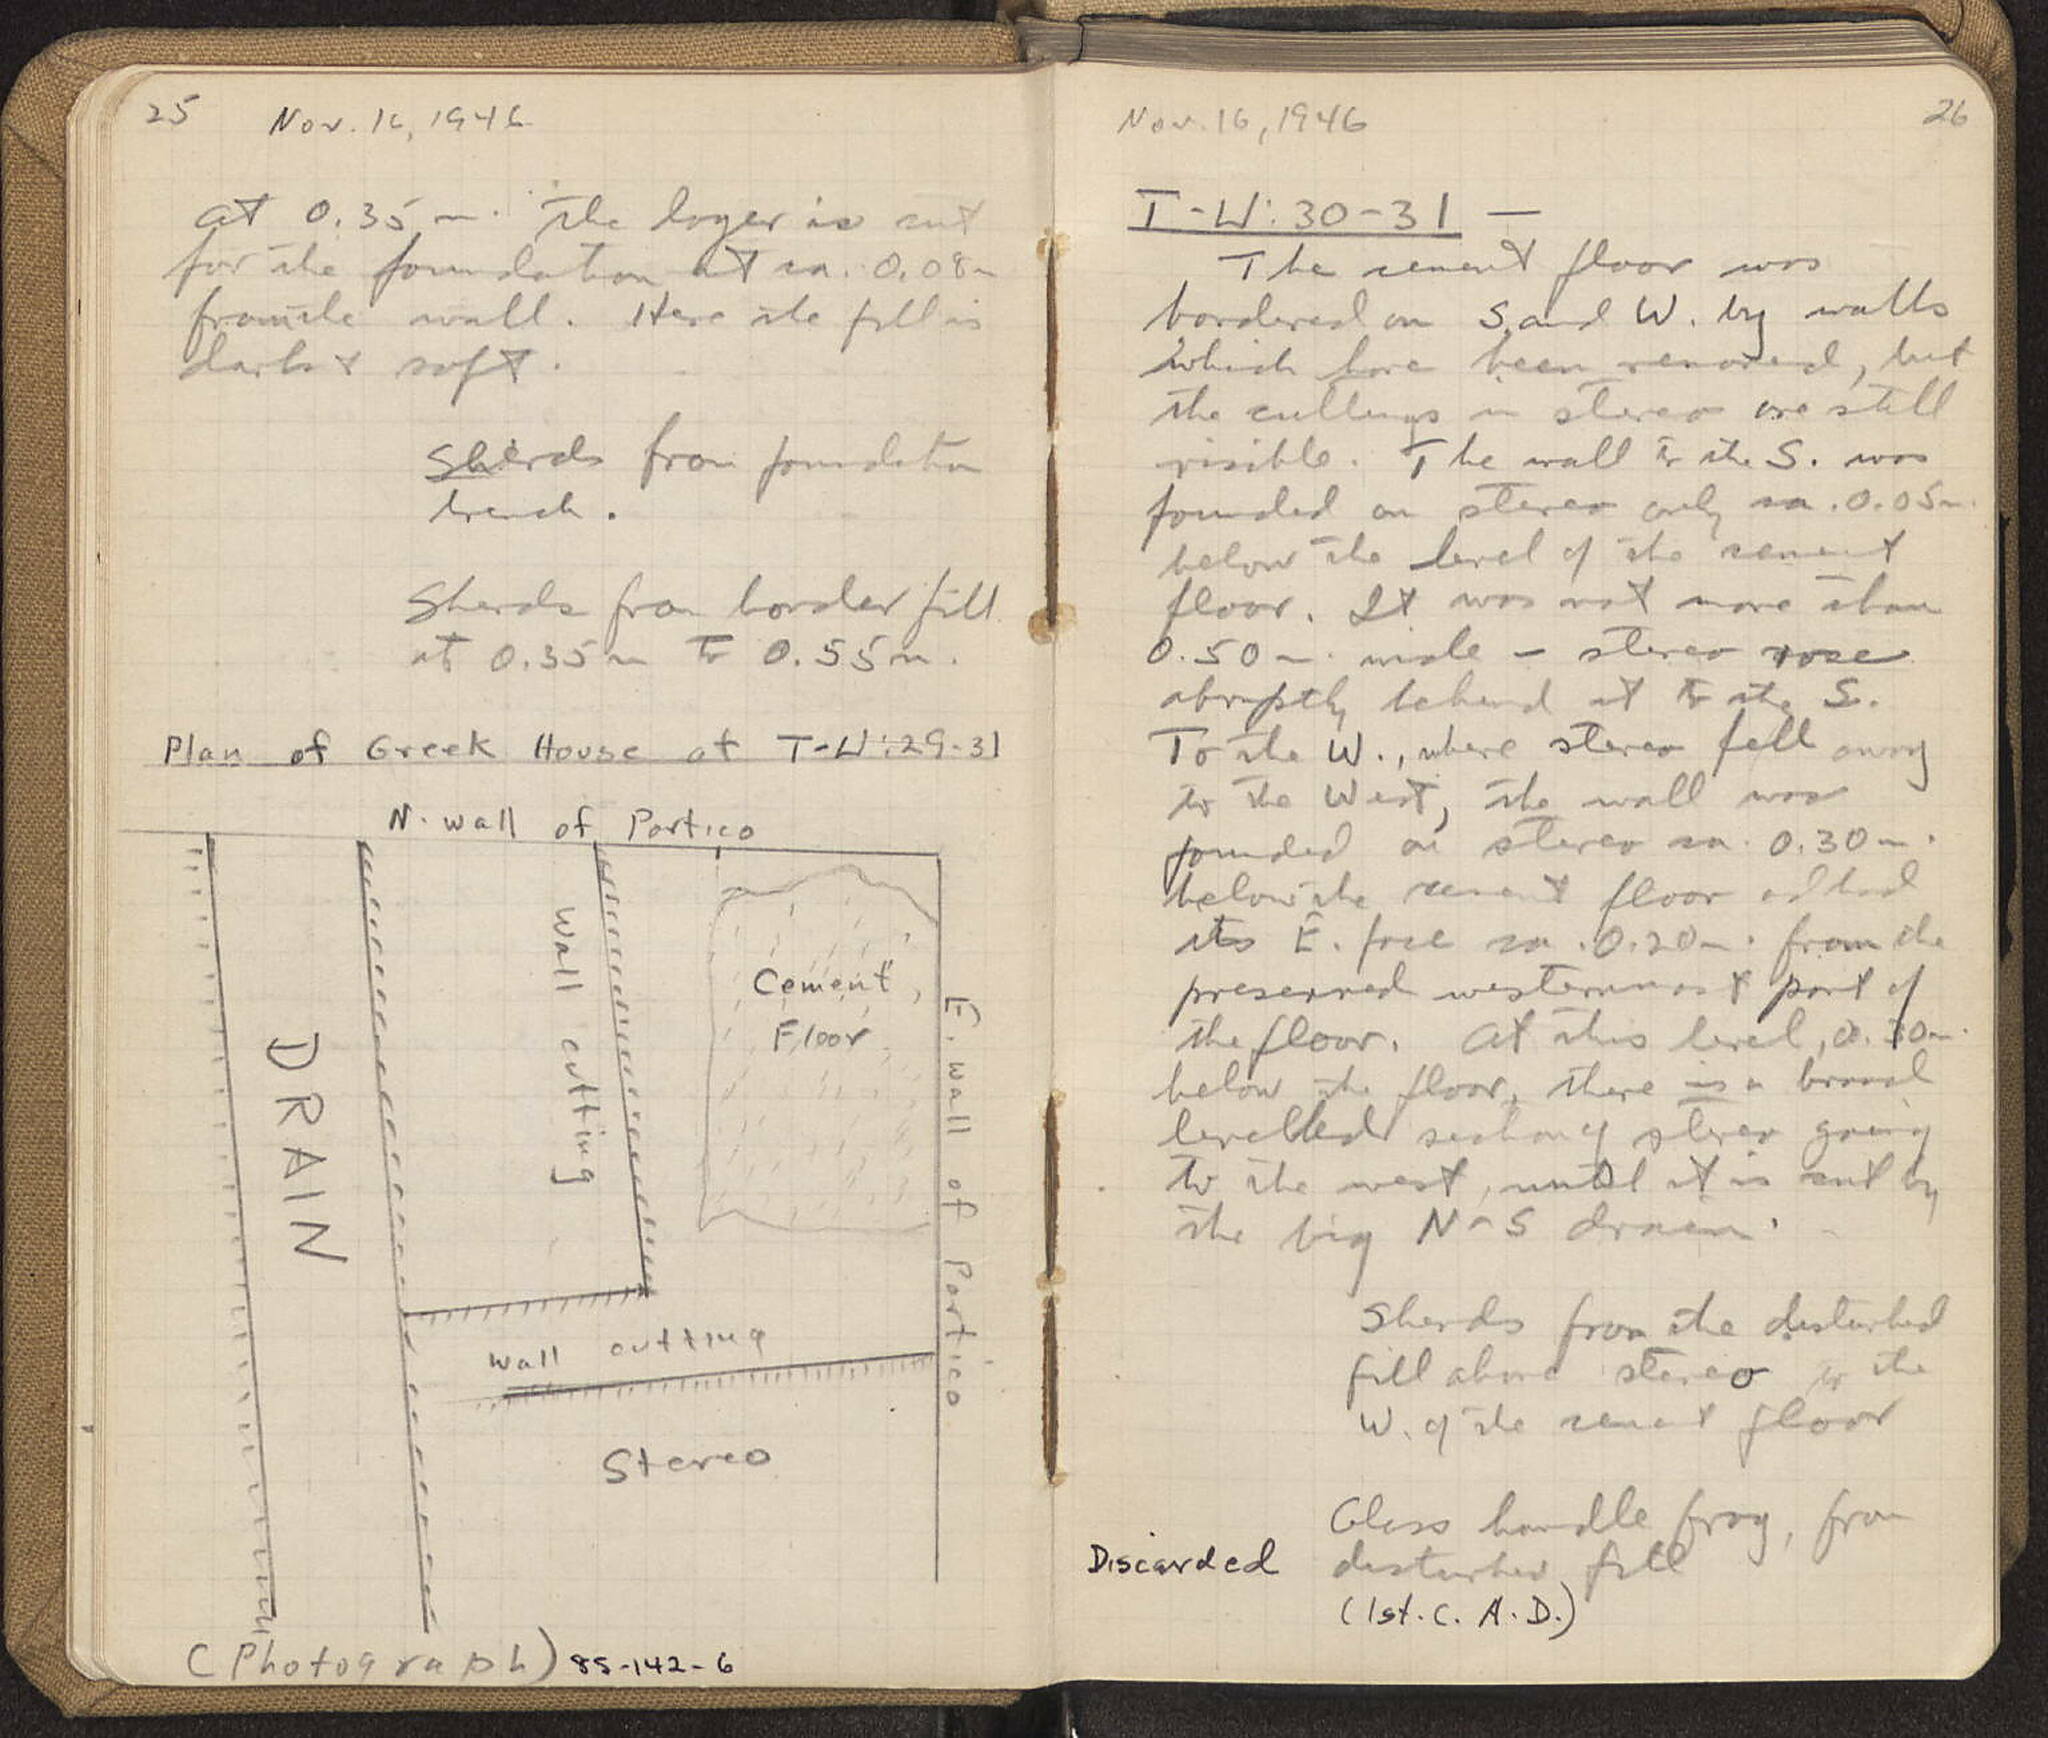 25 Nov. 16, 1946
at 0.35 m. The layer is cut
for the foundation at ca. 0.08 m
from the wall. Here the fill is
dark & soft.
Sherds from foundation
trench.
Sherds from border fill
at 0.35 m to 0.55 m.
Plan of Greek House at T-W:29-31
N. wall of Portico
Wall cutting
Cement
Floor
E. wall of Portico
DRAIN
Wall cutting
Stereo
(Photograph) 85-142-6
Nov. 16, 1946 26
T-W:30-31 —
The cement floor was
bordered on S. and W. by walls
which have been removed, but
the cuttings in stereo are still
visible. The wall to the S. was
founded on stereo only ca. 0.05 m.
below the level of the cement
floor. It was not more than
0.50 m. wide – stereo rose
abruptly behind it to the S.
To the W., where stereo fell away
to the West, the wall was
founded on stereo ca. 0.30 m.
below the cement floor and had
its E. face ca. 0.20 m. from the
preserved westernmost part of
the floor. At this level, 0.30 m.
below the floor, there is a broad
levelled section of stereo going
to the west, until it is cut by
the big N-S drain.
Sherds from the disturbed
fill above stereo to the
W. of the cement floor
Glass handle frag, from
Discarded disturbed fill
(1st. C. A. D.)